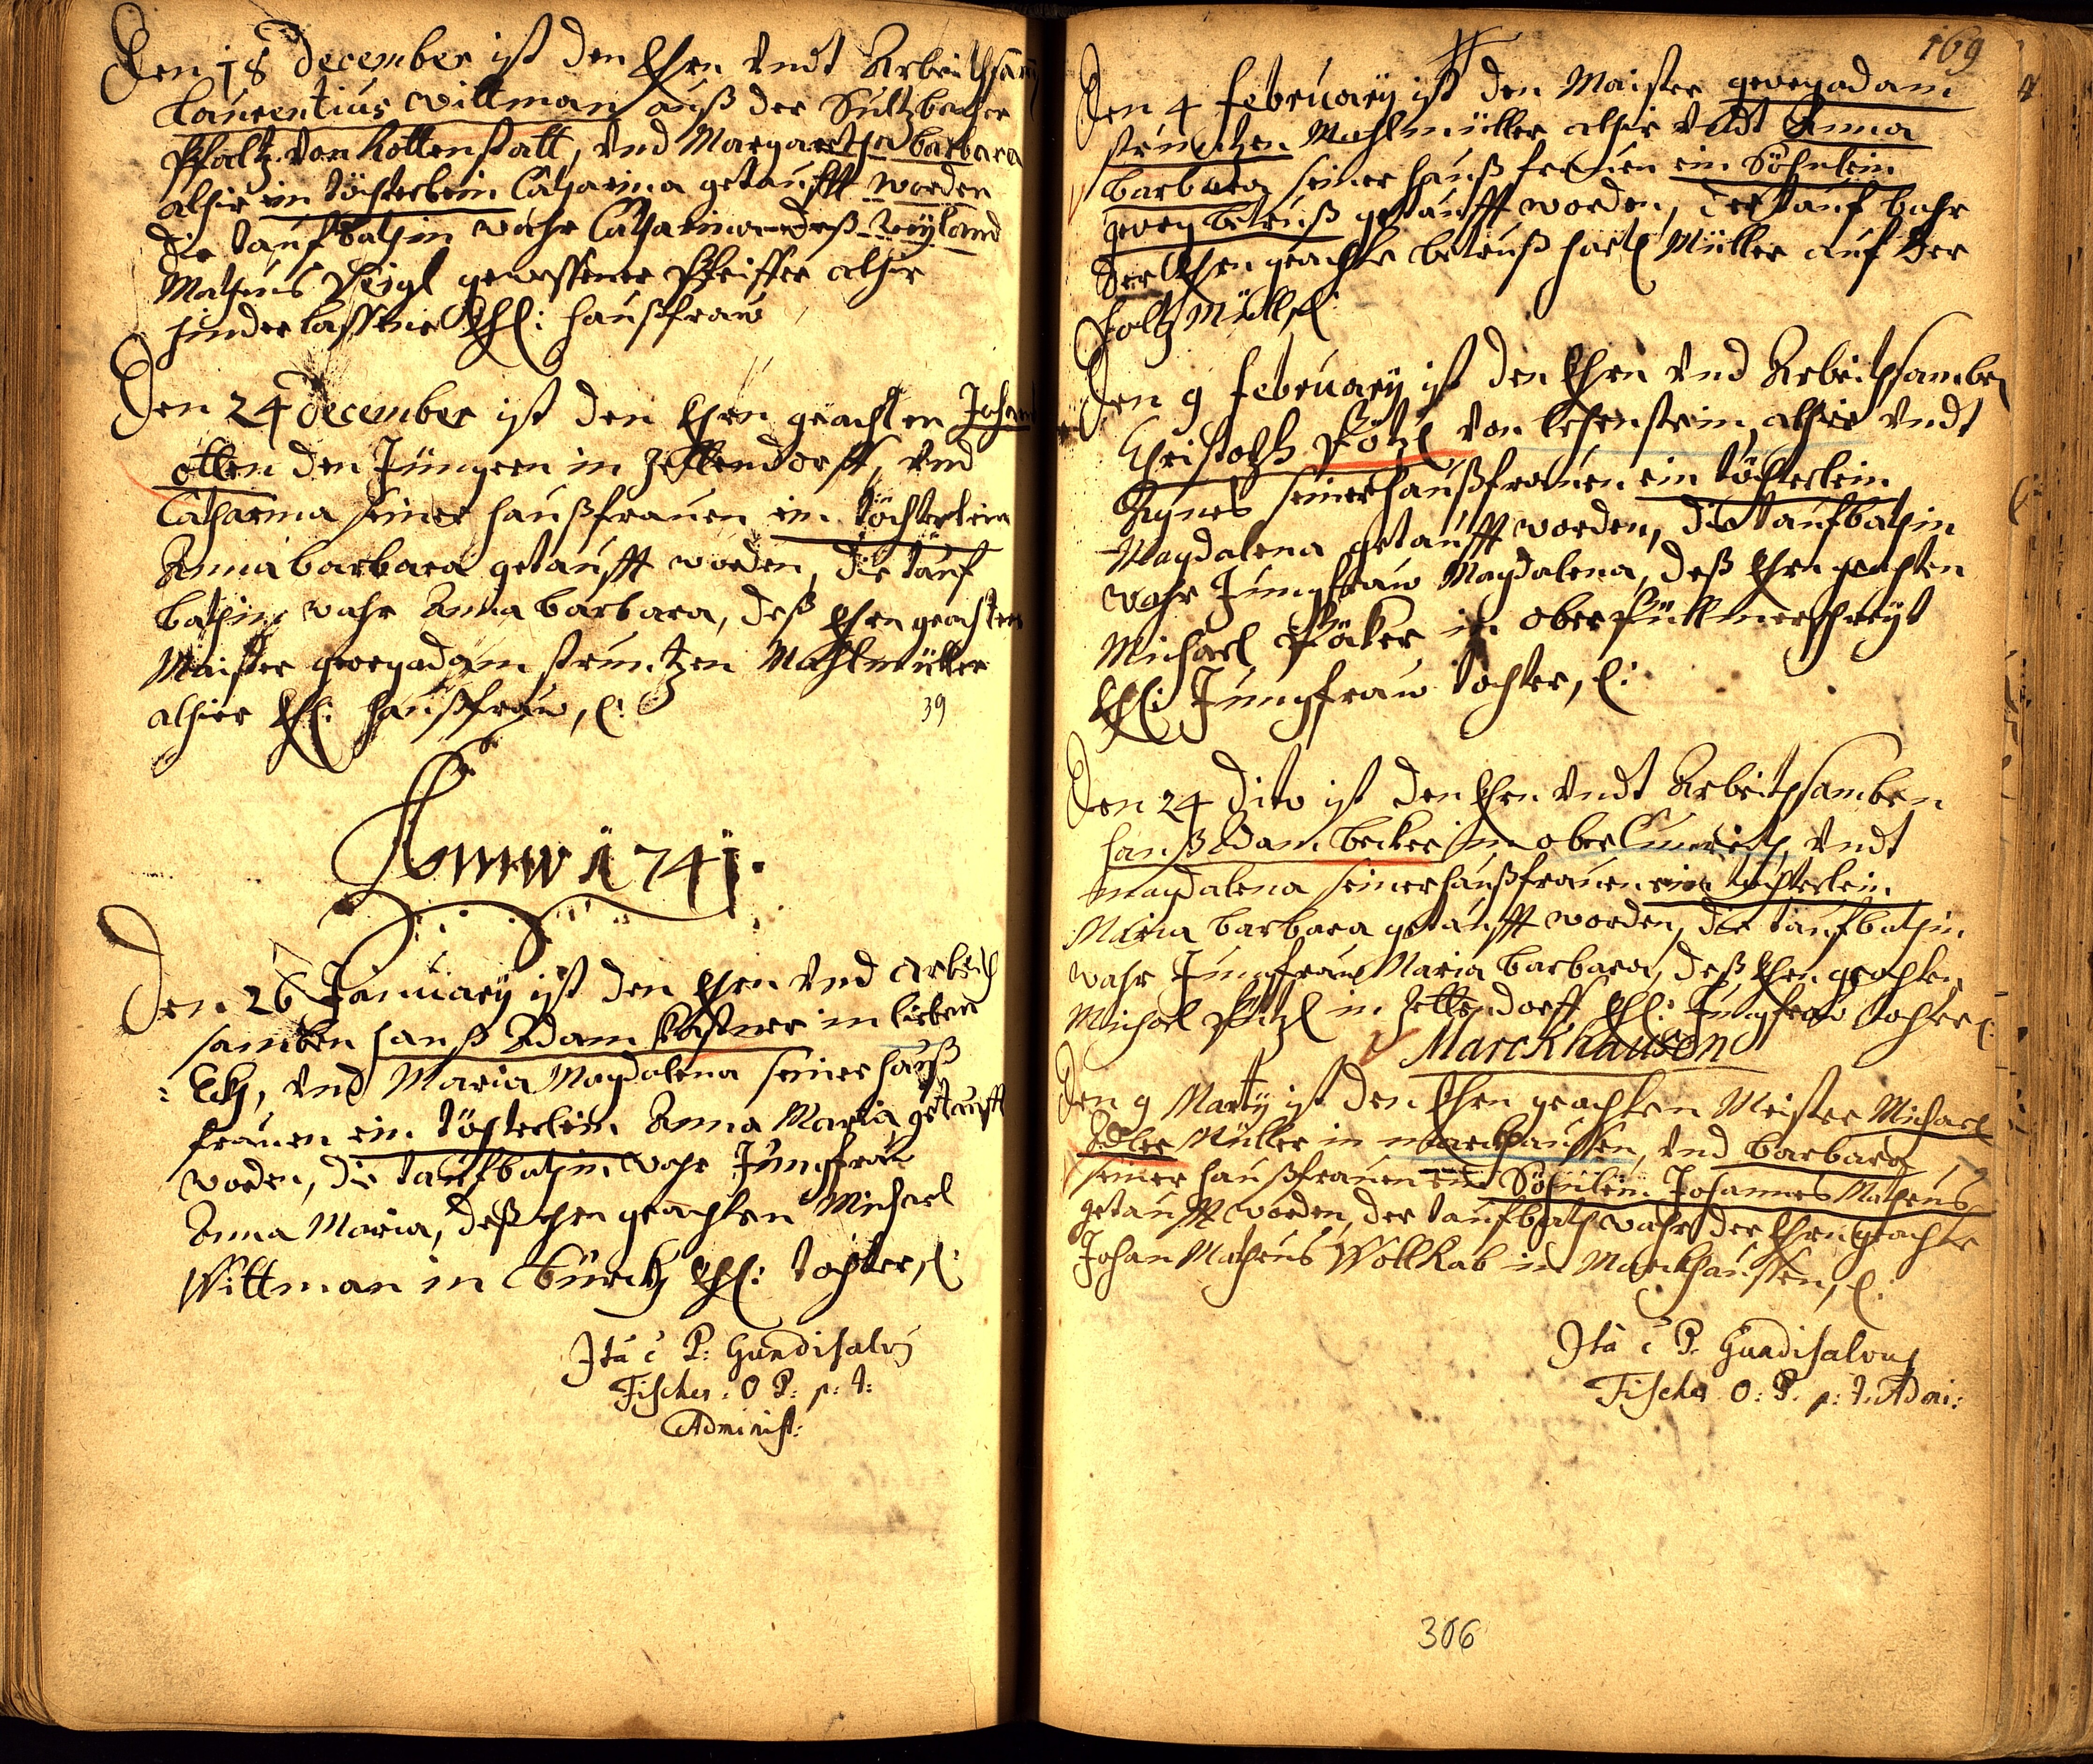 Den 18 december ist den Ehrn vndt Arbeithsam
Laurentius Wittman auß der Sultzbacher
Pfaltz von Rottenstatt, vnd Margaretha barbara
alhir ein töchterlein Catharina getaufft worden
die taufbathin wahr Catharina deß Weyland
Matheus gewessener Pfeiffer alhir
hinderlassene Ehl: haußfraw
Den 24 december ist den Ehrn geachten Johann
otten den Jüngern in Zettendorff, vnd
Catharina seiner haußfrauen ein töchterlein
Anna barbara getaufft worden, die tauf
bathin wahr Anna barbara, deß Ehrn geachten
Maister georg adam Muhlmüller
alhier Ehl: haußfraw, l:
39
Anno 1741.
Den 26 January ist den Ehrn vnd Arbeith
samben hanß Adam Kastner in lieben
: Eckh, vnd Maria Magdalena seiner hauß
frauen ein töchterlein Anna Maria getaufft
worden, die taufbathin wahr Jungfrau
Anna Maria, deß Ehrn geachten Michael
Wittman in Ehl: tochter, l:
Ita e P: Gundisalvq
Fischer: O P: p: t:
Administ:
169
Den 4 february ist den Maister georg adam
Mahlmüller alhir vndt Anna
barbara seiner haußfrauen ein Söhnlein
georg getaufft worden, der tauf bahr
der Ehrn geachte Müller auf der
holtz Mühl, l:
Den 9 february ist den Ehrn vnd Arbeithsamben
Christoph von alhir vndt
Agnes seiner haußfrauen ein töchterlein
Magdalena getaufft worden, die taufbathin
wahr Jungfraw Magdalena, deß Ehrn geachten
Michael in ober
Ehl: Jungfraw tochter, l:
Den 24 dito ist den Ehrn vndt Arbeithsamben
hanß Adam becker in vndt
magdalena seiner haußfrauen ein töchterlein
Maria barbara getaufft worden, die taufbathin
wahr Jungfraw Maria barbara, deß Ehrn geachten
Michael in Zettendorff Ehl: Jungfraw tochter l:
Marckhausen
Den 9 Marty ist den Ehrn geachten Meister Michael
Adler Müller in marckhaussen, vnd barbara
seiner haußfrauen ein Söhnlein Johannes Matheus
getaufft worden, der taufbath wahr der Ehrn geachte
Johan Matheus Wollkab in Marckhaussen, l:
Ita e P. Gundisalvus
Fischer O: P. p: t. Admi:
306